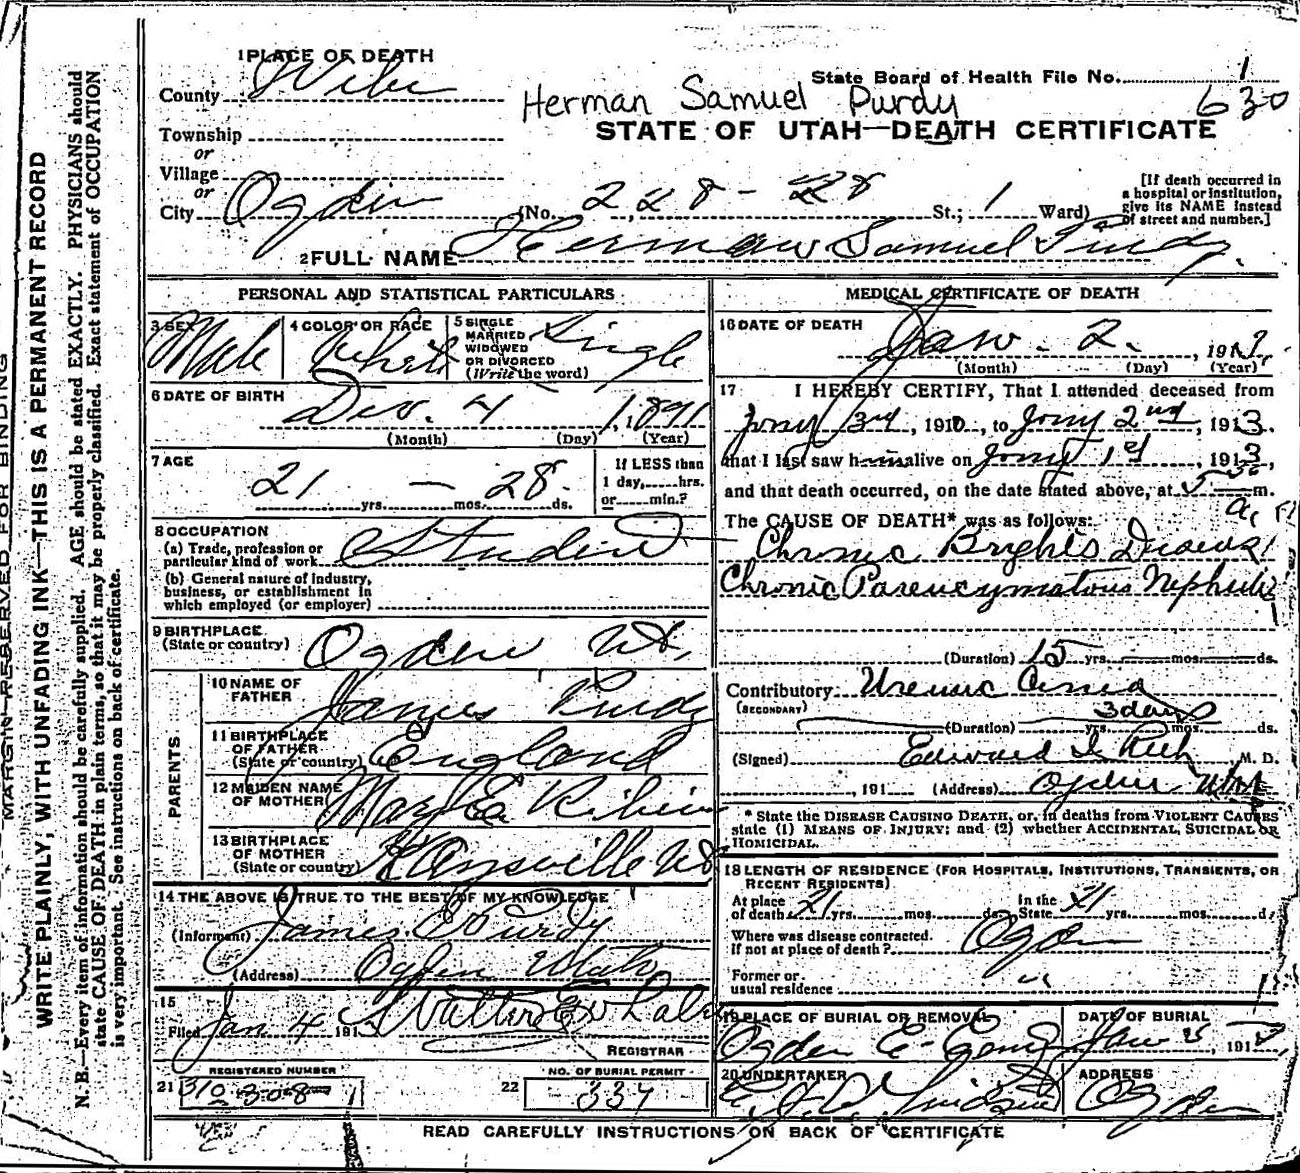 1 PLACE OF DEATH
State Board of Health File No. 1
County Weber
Herman Samuel Purdy 630
Township
STATE OF UTAH—DEATH CERTIFICATE
or
Village
or
City Ogden (No. 228 - 28 St.; 1 Ward)
[If death occurred in a hospital or institution, give its NAME instead of street and number.]
2 FULL NAME Herman Samuel Purdy.
PERSONAL AND STATISTICAL PARTICULARS
3 SEX Male
4 COLOR OR RACE White
5 SINGLE MARRIED, WIDOWED OR DIVORCED (Write the word) Single
6 DATE OF BIRTH Dec. 4, 1891
(Month) (Day) (Year)
7 AGE
21 yrs. — mos. 28 ds.
If LESS than 1 day, hrs. or min.?
8 OCCUPATION
(a) Trade, profession or particular kind of work Student
(b) General nature of industry, business, or establishment in which employed (or employer)
9 BIRTHPLACE (State or country) Ogden Ut.
PARENTS
10 NAME OF FATHER James Purdy
11 BIRTHPLACE OF FATHER (State or country) England
12 MAIDEN NAME OF MOTHER Mary E.
13 BIRTHPLACE OF MOTHER (State or country) Kaysville Ut
14 THE ABOVE IS TRUE TO THE BEST OF MY KNOWLEDGE
(Informant) James Purdy
(Address) Ogden Utah
15
Filed Jan 4 191
REGISTRAR
REGISTERED NUMBER
21
NO. OF BURIAL PERMIT
22 337
MEDICAL CERTIFICATE OF DEATH
16 DATE OF DEATH
Jan. 2, 191
(Month) (Day) (Year)
17 I HEREBY CERTIFY, That I attended deceased from
Jany 3rd, 1910, to Jany 2nd, 1913.
that I last saw him alive on Jany 1st, 1913,
and that death occurred, on the date stated above, at 5 30 m.
a.
The CAUSE OF DEATH* was as follows:
Chronic Brights Disease
Chronic Parencymatous Nephritis
(Duration) 15 yrs. mos. ds.
Contributory Uremic
(SECONDARY)
3 days
(Duration) yrs. mos. ds.
(Signed) Edward I. Rich, M. D.
, 191 (Address) Ogden Utah
* State the DISEASE CAUSING DEATH, or, in deaths from VIOLENT CAUSES state (1) MEANS OF INJURY; and (2) whether ACCIDENTAL, SUICIDAL OR HOMICIDAL.
18 LENGTH OF RESIDENCE (FOR HOSPITALS, INSTITUTIONS, TRANSIENTS, OR RECENT RESIDENTS)
At place of death 21 yrs. mos. ds. In the State 21 yrs. mos. d
Where was disease contracted. If not at place of death? Ogden
Former or usual residence "
19 PLACE OF BURIAL OR REMOVAL Ogden
DATE OF BURIAL Jan 5, 191
20 UNDERTAKER
ADDRESS Ogden
READ CAREFULLY INSTRUCTIONS ON BACK OF CERTIFICATE
MARGIN RESERVED FOR BINDING
WRITE PLAINLY, WITH UNFADING INK—THIS IS A PERMANENT RECORD
N. B.—Every item of information should be carefully supplied. AGE should be stated EXACTLY. PHYSICIANS should
state CAUSE OF DEATH in plain terms, so that it may be properly classified. Exact statement of OCCUPATION
is very important. See instructions on back of certificate.